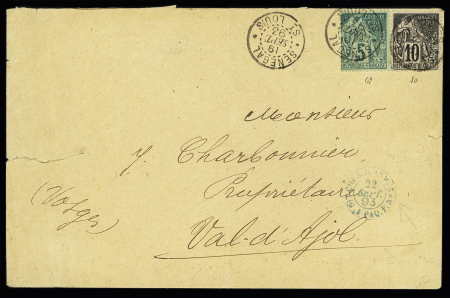 SENEGAL
19
SEPT
93
ST LOUIS
5
10
12 10
Monsieur
J. Charbonnier
Propriétaire
22
SEPT.
93
(Vosges)
Val-d'Ajol.